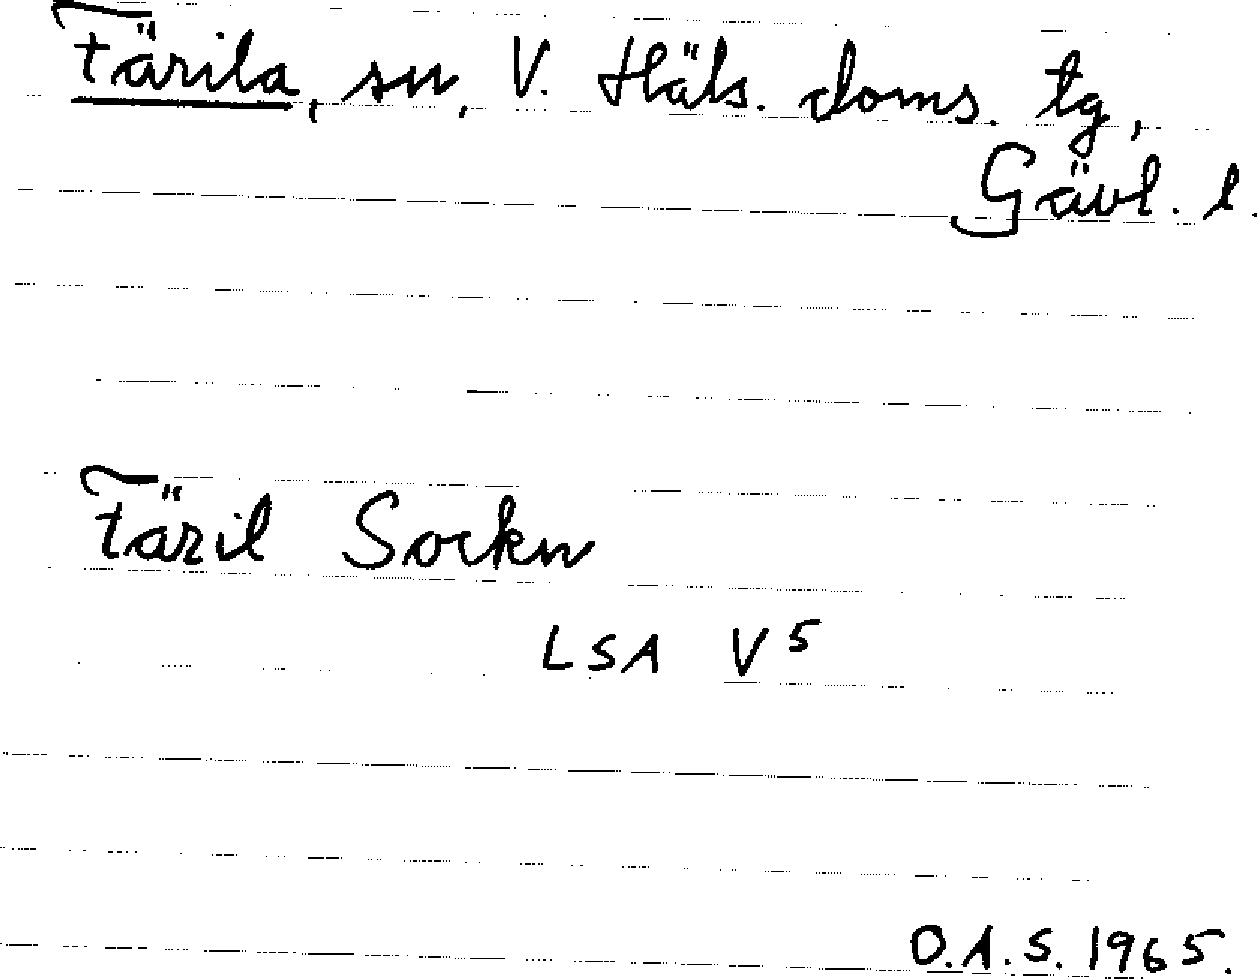 Färila, sn, V. Häls. doms. tg,
Gävl. l.
Färil Sockn
LSA V5
O.A.S. 1965.